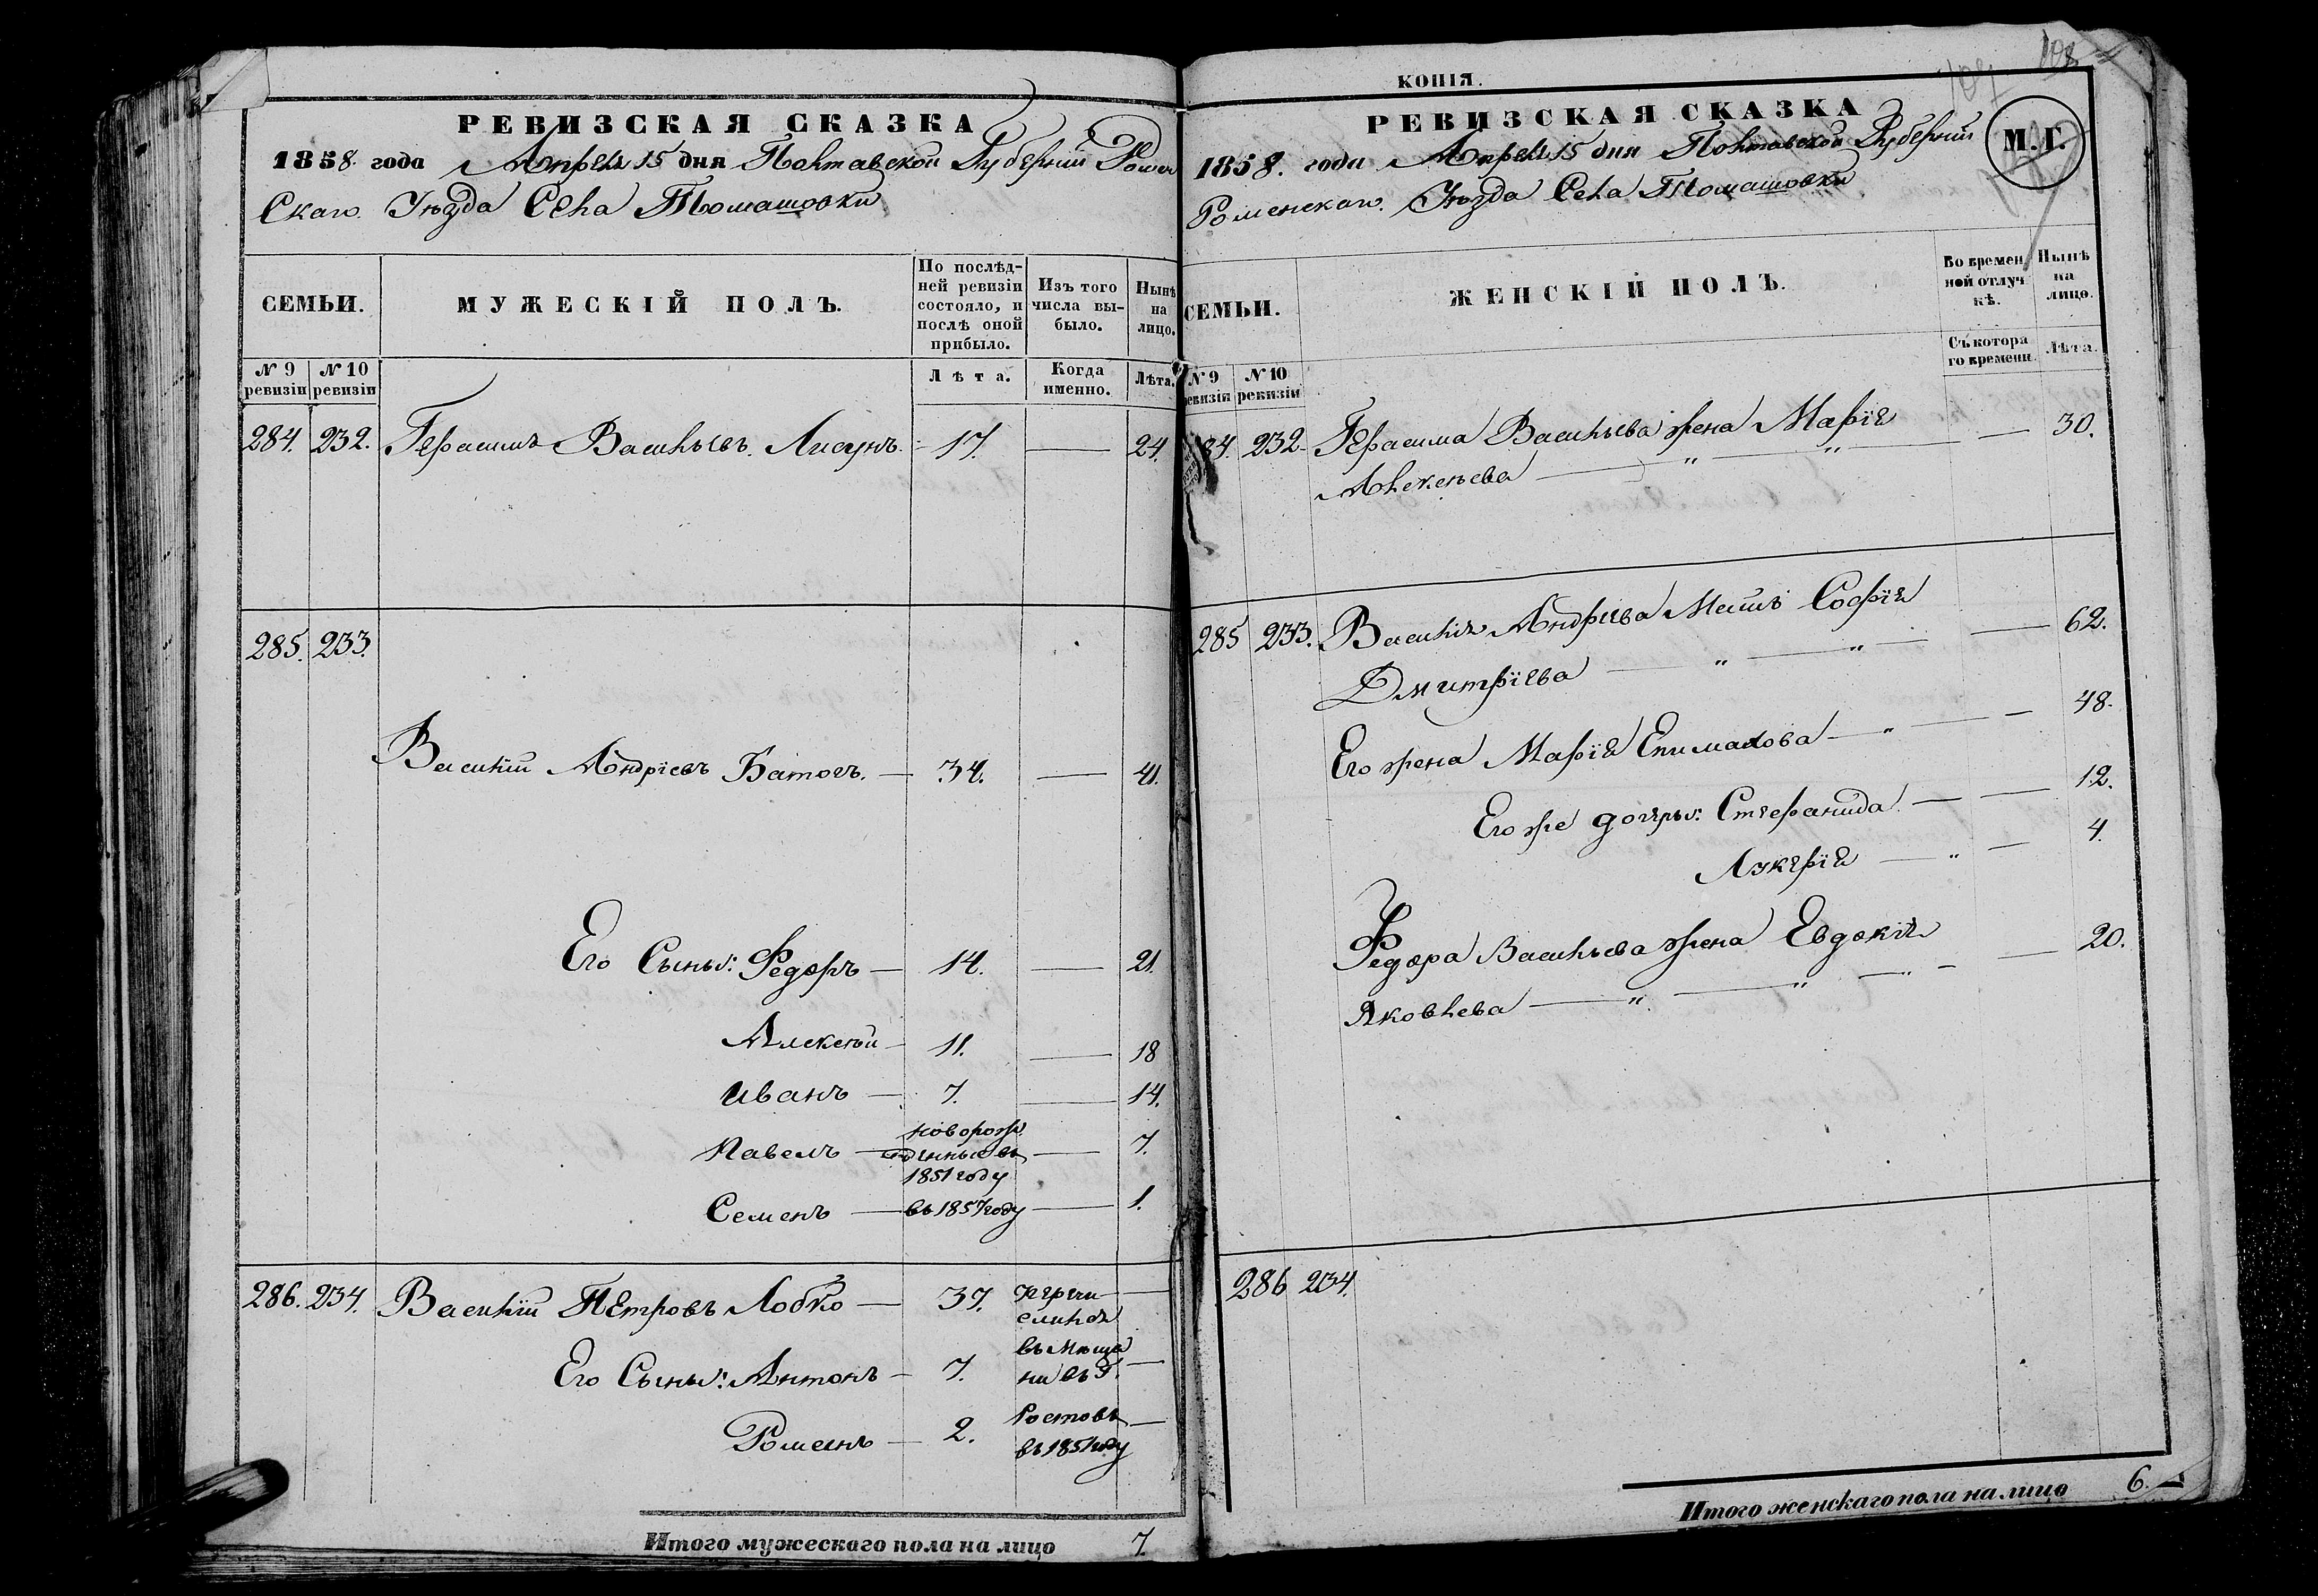 РЕВИЗСКАЯ СКАЗКА
1858. года Апреля 15 дня Полтавской Губерніи Ромен
Скаго Уѣзда Села Томашовки
СЕМЬИ.
МУЖЕСКІЙ ПОЛЪ.
По послѣд-
ней ревизіи
состояло, и
послѣ оной
прибыло.
Изъ того
числа вы-
было.
Нынѣ
на
лицо.
№ 9
ревизіи
№ 10
ревизіи
Лѣта.
Когда
именно.
Лѣта.
284. 232. Герасимъ Васильевъ Лисунъ. 17. 24.
285. 233.
Василій Андріевъ Батогъ. 34. 41.
Его Сыны: Федоръ 14. 21.
Алексѣй 11. 18
Иванъ 7. 14.
Павелъ новорож
денные въ
1851 году 7.
Семенъ въ 1857 году 1.
286. 234. Василій Петровъ Лобко 37. перечи
слился
въ Мѣща
Его Сыны: Антонъ 7. ни въ Г.
Ростовъ
Роменъ 2. въ 1851 году
Итого мужескаго пола на лицо 7.
КОПІЯ.
108
РЕВИЗСКАЯ СКАЗКА
М.Г.
1858. года Апреля 15 дня Полтавской Губерніи
Роменскаго Уѣзда Села Томашовки
СЕМЬИ.
ЖЕНСКІЙ ПОЛЪ.
Во времен
ной отлуч
кѣ.
Нынѣ
на
лицо.
№ 9
ревизіи
№ 10
ревизіи
Съ котора
го времени.
Лѣта.
284. 232. Герасима Васильева жена Марія 30.
Алексѣева " "
285 233. Василія Андріева Мать Софія 62.
Дмитріева " "
Его жена Марія Епимахова " 48.
Его же дочеры: Стефанида 12.
Лукерія " 4.
Федора Васильева жена Евдокія 20.
Яковлева " " "
286 234.
Итого женскаго пола на лицо 6.